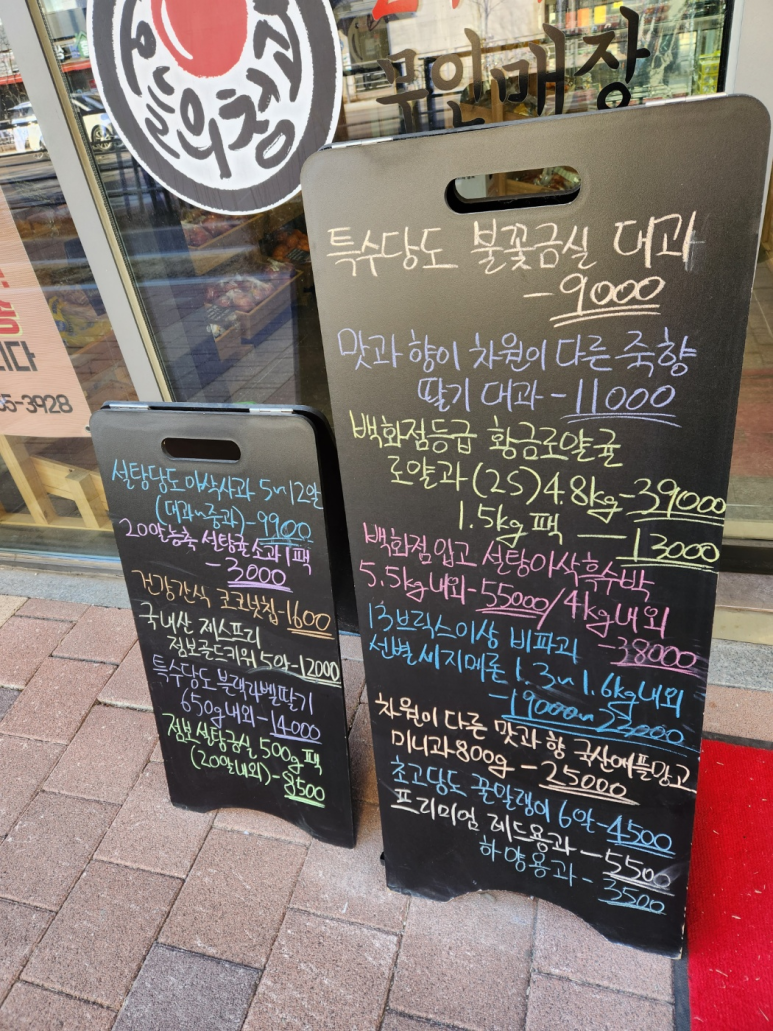 오늘의청정
무인매장
특수당도 불꽃금실 대과
-9000
맛과 향이 차원이 다른 죽향
딸기 대과-11000
백화점등급 황금로얄귤
로얄과(2S)4.8kg-39000
1.5kg팩 —13000
백화점입고 설탕아삭흑수박
5.5kg내외-55000/4kg내외
-38000
13브릭스이상 비파괴
선별세지메론 1.3~1.6kg내외
-19000~23000
차원이 다른 맛과 향 국산애플망고
미니과800g-25000
초고당도 꾼말랭이 6알-4500
프리미엄 레드용과-5500
하양용과-3500
설탕당도아삭사과 5~12알
(대과~중과)-9900
20알농축 설탕귤소과1팩
-3000
건강간식 코코넛칩-1600
국내산 제스프리
점보골드키위5알-12000
특수당도 블랙라벨딸기
650g내외-14000
점보설탕금실 500g팩
(20알내외)-8500
다
55-3928